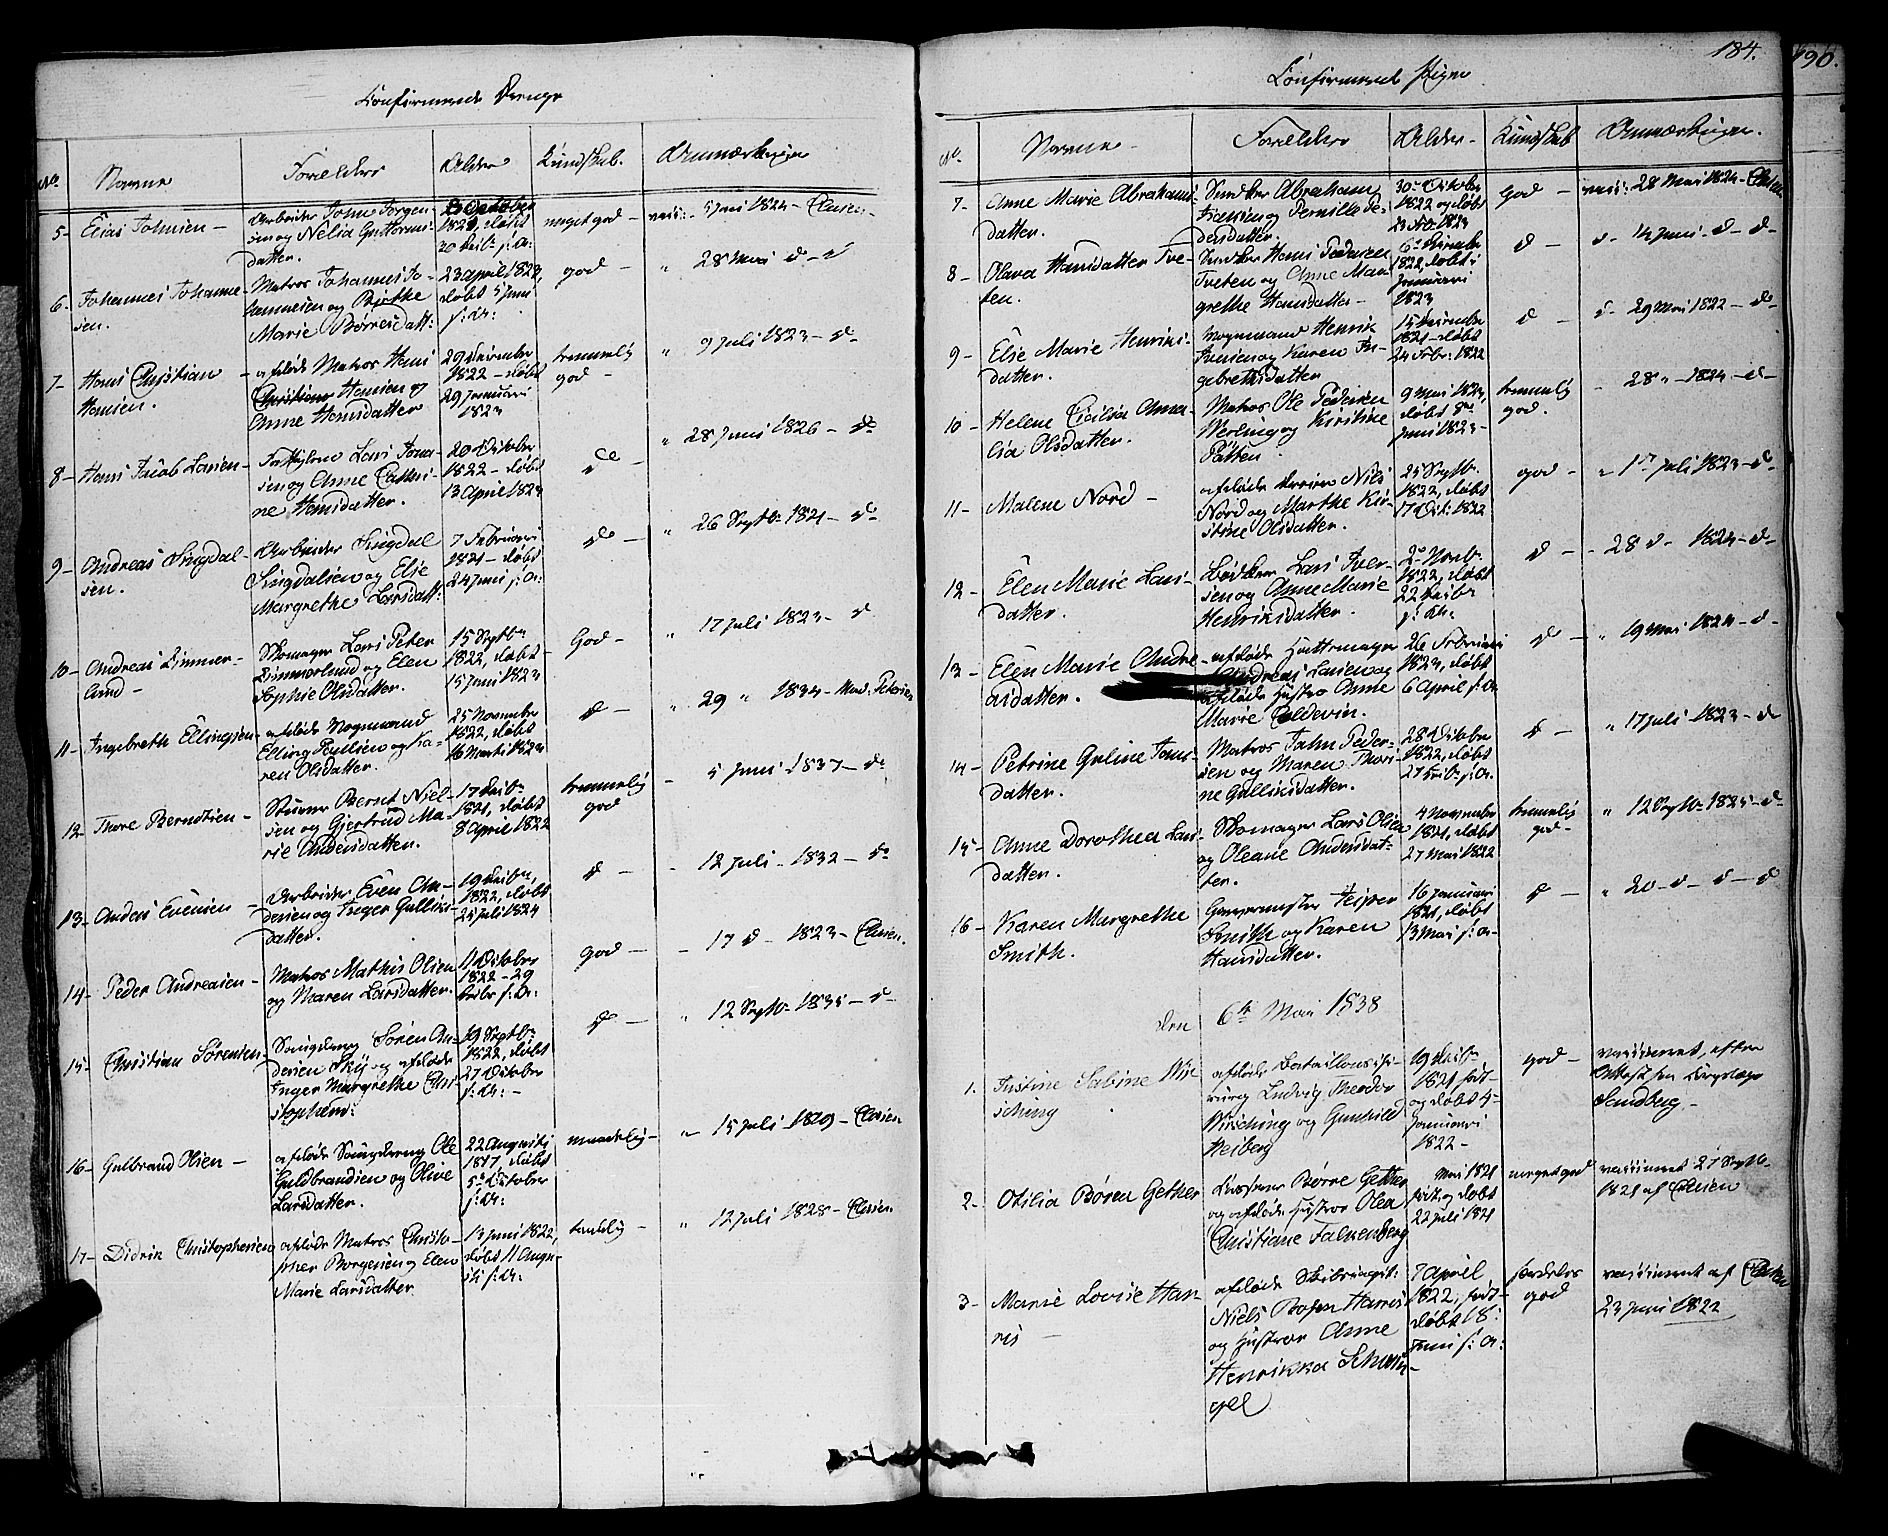 Confirmerede Drenge
No.
Navne
Forældre
Alder
Kundskab.
Anmærkninger
5-
Elias Johnsen -
Arbeider John Jørgen-
sen og Nelia Guttorms-
datter.
1821, døbt
30 Decbr s: A:
meget god -
vacc: - 5 Juni 1824 - Clasen -
6-
Johannes Johanne-
sen.
Matros Johannes Jo-
hannesen og Birthe
Marie Børresdatt:
23 April 1822,
døbt 5 Juni
s: A:
god -
" 28 Mai d - d
7-
Hans Christian
Hansen.
- afdøde Matros Hans
Christian Hansen og
Anne Hansdatter
29 December
1822 - døbt
29 Januari
1823
temmelig
god -
" 9 Juli 1823 - do
8-
Hans Jacob Larsen -
Lars Jona-
sen og Anne Cathri-
ne Hansdatter.
20 October
1822 - døbt
13 April 1823
do
" 28 Juni 1826 - do
9-
Andreas Singdal-
sen.
Arbeider Singdal
Singdalsen og Else
Margrethe Larsdatt:
7 Februari
1821 - døbt
24 Juni s: A:
do -
" 26 Septbr 1821 - do
10-
Andreas Zimmer-
lund -
Skomager Lars Peter
Zimmerlund og Elen
Sophie Olsdatter.
15 Septbr
1822, døbt
15 Juni 1823
God -
" 17 Juli 1823 - d
11-
Ingebreth Ellingsen -
afdøde Vognmand
Elling Poulsen og Ka-
ren Olsdatter.
25 November
1822, døbt
16 Marts 1823
d -
" 29 " 1834 - Mad: Petersen
12-
Thore Berntsen -
Sluser Bernt Niel-
sen og Gjertrud Ma-
rie Andersdatter.
17 Decbr
1821, døbt
8 April 1822
temmelig
god
- 5 Juni 1837 - do
13-
Anders Evensen -
Arbeider Even An-
dersen og Inger Gulliks-
datter.
19 Decbr,
1822, døbt
25 Juli 1824
d -
- 12 Juli - 1832 - do
14-
Peder Andreasen -
Matros Mathis Olsen
og Maren Larsdatter.
11 October
1822 - 29
Decbr s: A:
god -
- 17 d - 1823 - Clasen.
15-
Christian Sørensen -
Saugdreng Søren An-
dersen Skij og afdøde
Inger Margrethe Chri-
stophers:
19 Septbr
1822, døbt
27 October
s: A: -
d -
" 12 Septbr 1835 - d -
16-
Gulbrand Olsen -
afdøde Saugdreng Ole
Guldbrandsen og Oline
Larsdatter.
22 Augusti
1817, døbt
5te October
s: A:
maadelig -
" 15 Juli 1829 - Clasen
17-
Didrik Christophersen
afdøde Matros Christo-
pher Borgersen og Elen
Marie Larsdatter
13 Juni 1822,
døbt 11 Augu-
sti s: A:
taalelig -
" 12 Juli 1828 - Clasen
184.
190.
Confirmerede Piger
No.
Navne -
Forældre
Alder -
Kundskab
Anmærkninger.
7-
Anne Marie Abrahams-
datter.
Snedker Abraham
Iversen og Pernille Pe-
dersdatter.
30te October
1822 og døbt
1823
god -
vacc: 28 Mai 1824 - Clasen
8-
Olava Hansdatter Tve-
ten.
Snedker Hans Pedersen
Tveten og Anne Mar-
grethe Hansdatter -
6te December
1822, døbt i
Januari
1823
d -
d - 14 Juni - d - d -
9-
Else Marie Henriks-
datter.
Vognmand Henrik
Iversen og Karen In-
gebrethsdatter
15 December
1821 - døbt
24 Febr: 1822
d -
d - 29 Mai 1822 - do
10-
Helene Cicilia Ama-
lia Olsdatter.
Matros Ole Pedersen
Werling og Kirstine
Platten.
9 Mai 1823,
døbt 8de
Juni 1823 -
temmelig
god.
- 28 " - 1824 - d -
11-
Malene Nord -
afdøde Nils
Nord og Marthe Kir-
stine Olsdatter.
25 Septbr
1822, døbt
17 Oct: 1822
god -
" 1ste Juli 1823 - do
12-
Elen Marie Lars-
datter.
Bødker Lars Iver-
sen og Anne Marie
Henriksdatter.
2den Novbr
1822, døbt
22 Decbr
s: A:
d -
- 28 d - 1824 - d -
13-
Elen Marie Andre-
asdatter.
- afdøde Hattemager
Andreas Larsen og
afdøde Hustro Anne
Marie Coldevin.
26 Februari
1823, døbt
6 April s: A
d -
" 19 Mai 1824 - d -
14-
Petrine Guline Jans-
datter.
Matros Jahn Peder-
sen og Maren Thori-
ne Gulliksdatter.
28 October
1822, døbt
27 Decbr s: A:
d -
" 17 Juli - 1823 - d
15-
Anne Dorothea Lars-
datter.
Skomager Lars Olsen
og Oleane Andersdat-
ter.
4 November
1821, døbt
27 Mai 1822
temmelig
god -
" 12 Septbr 1825 - do
16-
Karen Margrethe
Smith.
Jesper
Smith og Karen
Hansdatter.
16 Januari
1821, døbt
13 Mai s: A -
d -
" 20 - d - d - d
den 6te Mai 1838
1.
Justine Sabine Wir-
sching
afdøde Batallonschi-
rurg Ludvig Theodor
Wirsching og Gunhild
Heiberg
19 Decbr
1821 født -
og døbt 4
Januari
1822 -
god -
vaccineret, efter
Attest fra Corpslæge
Sundberg -
2-
Otilia Børea Gether
Børre Gether
og afdøde Hustroe Olea
Christiane Falkenberg
Mai 1821
født, og døbt
22 Juli 1821
meget god
vaccineret 27 Septb-
1821 af Clasen
3-
Marie Lovise Har-
ris -
afdøde Skibscapit:
Niels Boysen Harris
og Hustroe Anne
Henrikka Schwin-
gel
7 April
1822, født -
døbt 18
Juni s: A:
særdeles
god
vaccineret af Clasen
23 Juni 1822